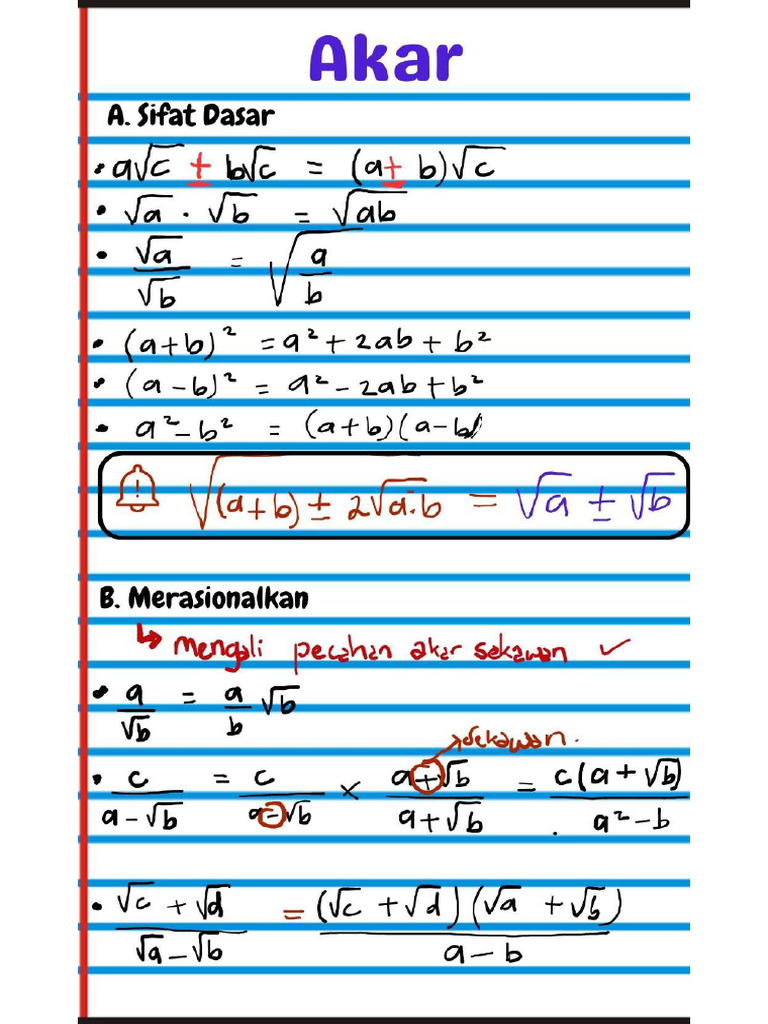 Akar
A. Sifat Dasar
• a√c + b√c = (a + b)√c
• √a . √b = √ab
• √a/√b = √(a/b)
• (a+b)² = a² + 2ab + b²
• (a-b)² = a² - 2ab + b²
• a² - b² = (a+b)(a-b)
! √((a+b) ± 2√a.b) = √a ± √b
B. Merasionalkan
↳ mengali pecahan akar sekawan ✓
• a/√b = a/b √b
sekawan.
• c/(a-√b) = c/(a-√b) × (a+√b)/(a+√b) = c(a+√b)/(a²-b)
• (√c + √d)/(√a - √b) = (√c + √d)(√a + √b)/(a-b)